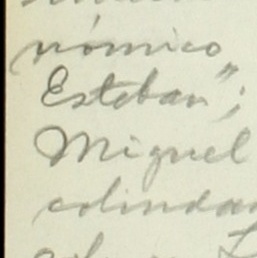 nómico
Esteban";
Miguel
colindan